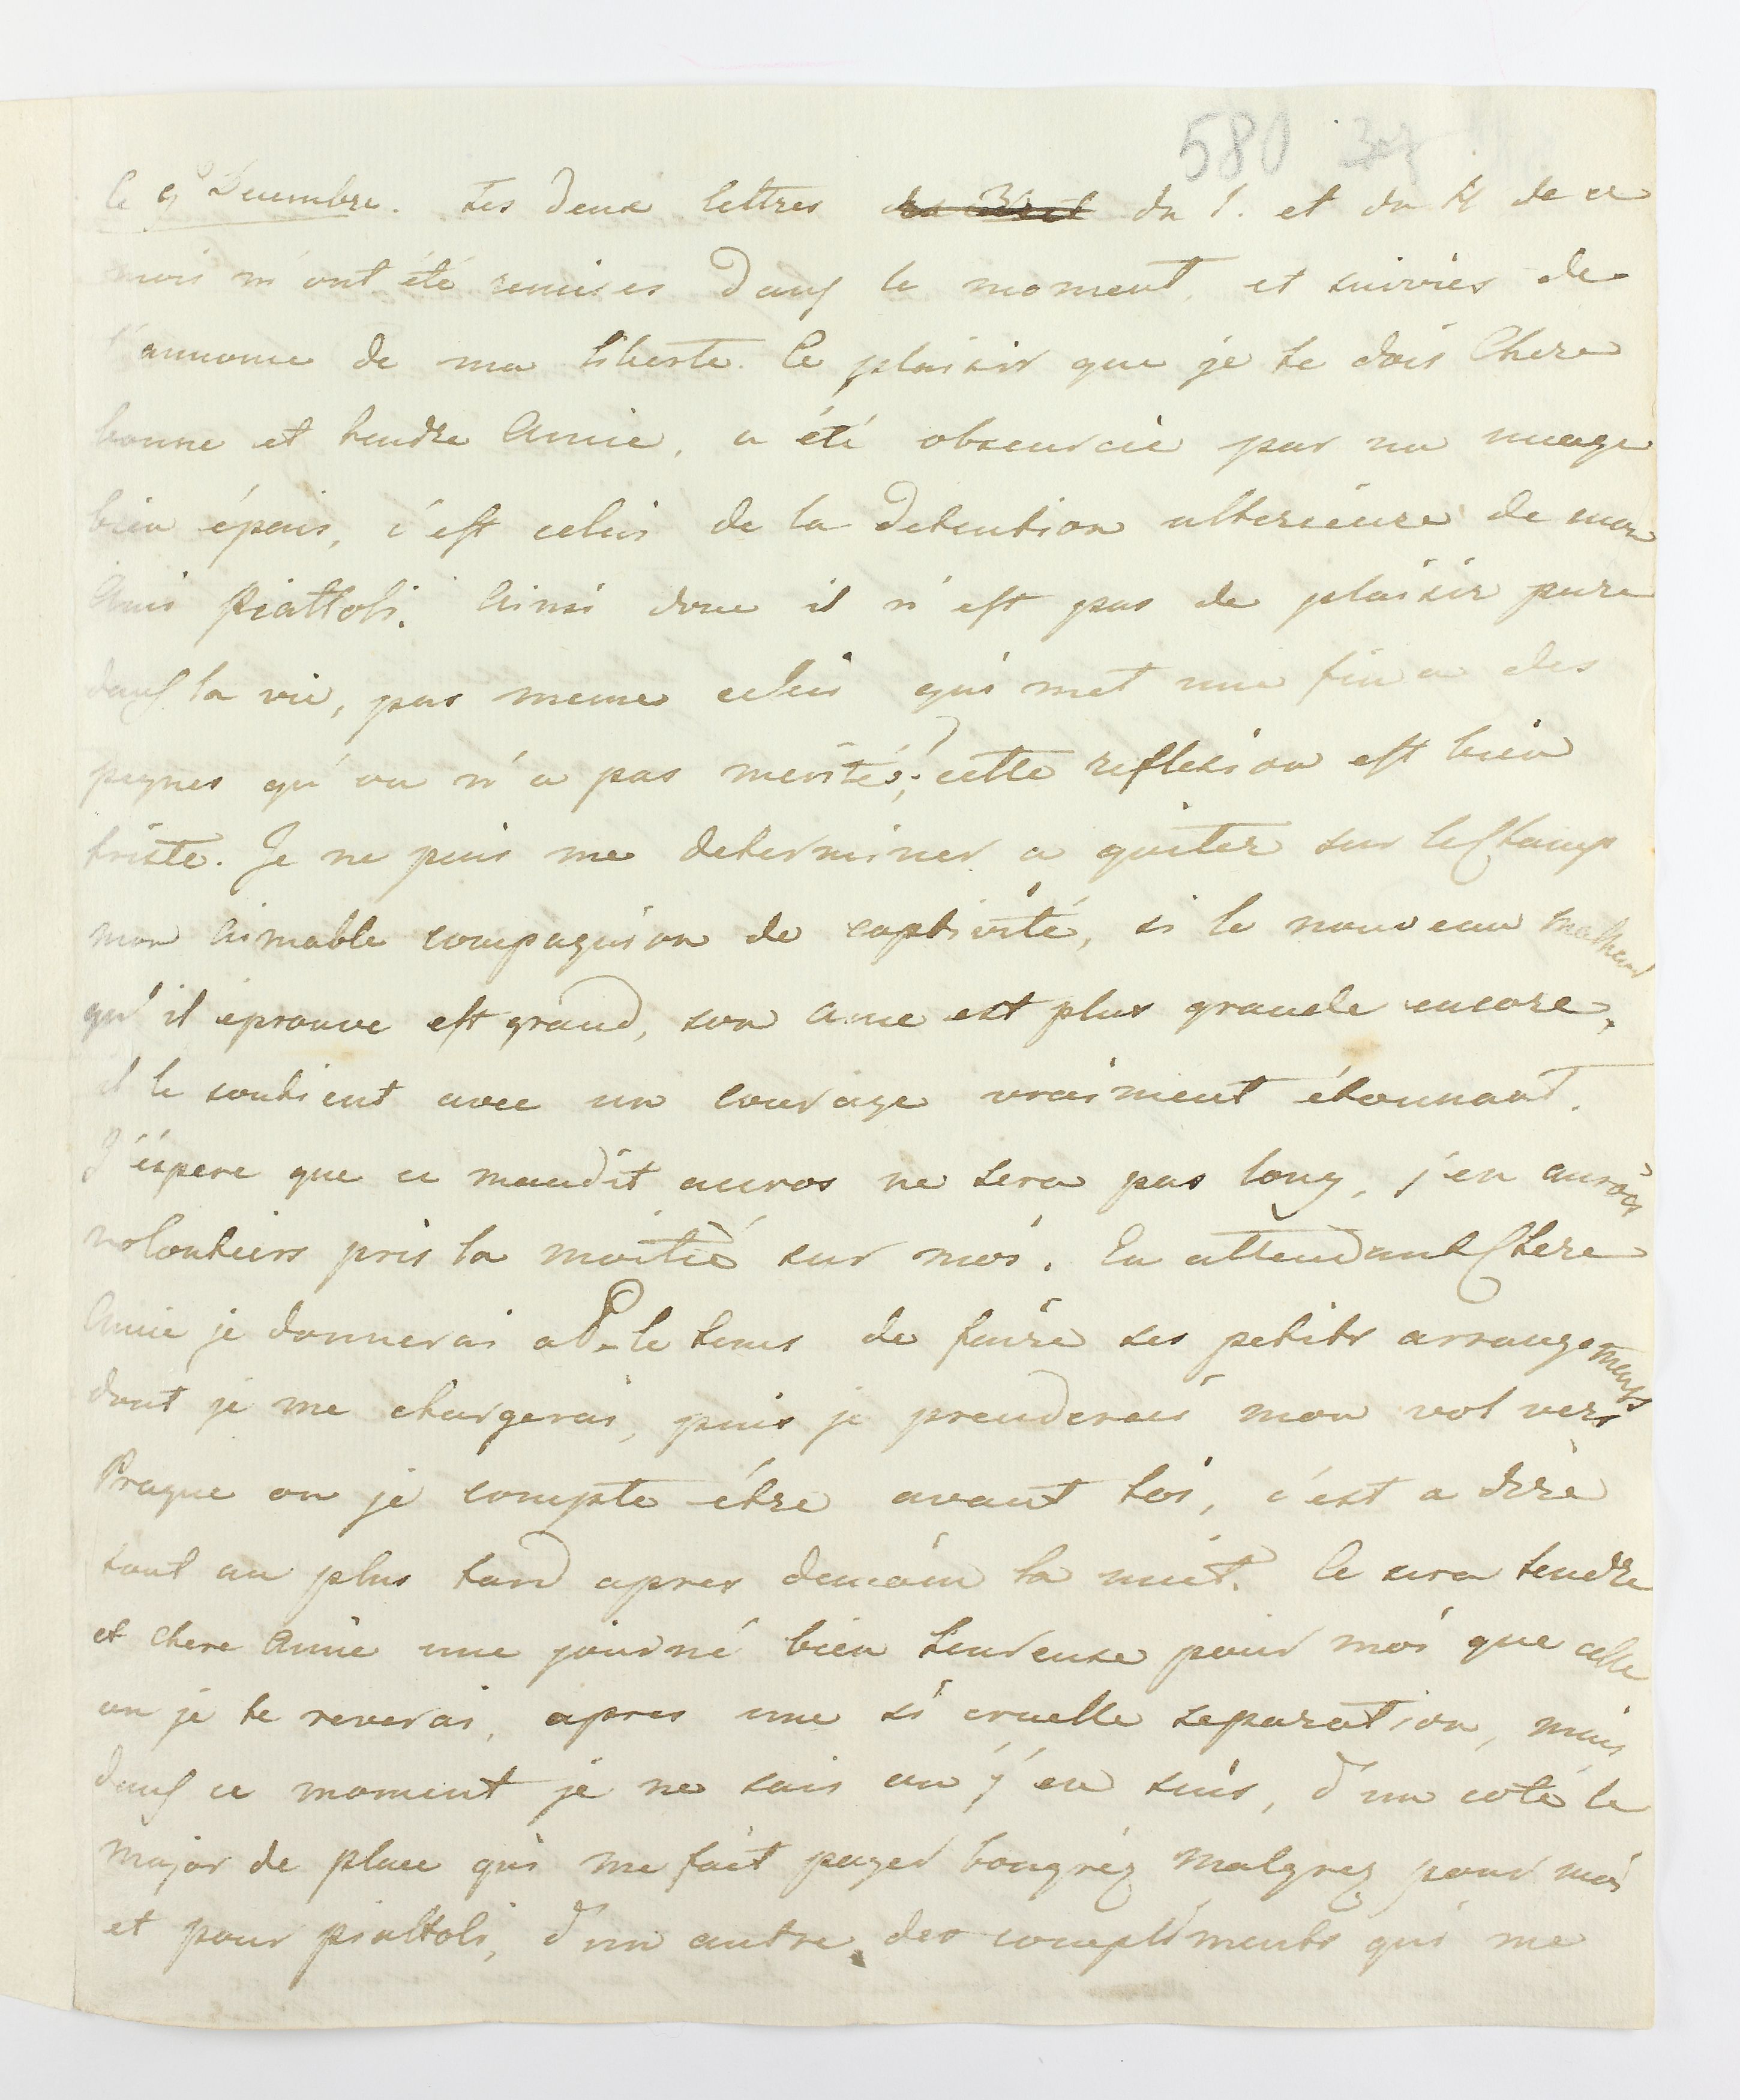 580
le 9 Decembre. tes deux lettres du 1. et du 4 de ce
mois m'ont été remises dans le moment, et suivies de
l'annonce de ma liberte. Ce plaisir que je te dois Chere
bonne et tendre Amie, a été obscurcie par un nuage
bien épais, c'est celui de la detention ulterieure de mon
Ami Piattoli. Ainsi donc il n'est pas de plaisir pure
dans la vie, pas meme celui qui met une fin a des
peynes qu'on n'a pas merités; cette reflexion est bien
triste. Je ne puis me determiner a quiter sur le Champ
mon aimable compagnion de captivité, si le nouveau malheur
qu'il eprouve est grand, son ame est plus grande encore,
il le soutient avec un courage vraiment étonnant.
J'éspere que ce maudit accros ne sera pas long, j'en aurois
volontiers pris la moitié sur moi. En attendant Chere
Amie je donnerai a P. le tems de faire ses petits arrangements
dont je me chargerai, puis je prenderai mon vol vers
Prague ou je compte étre avant toi, c'est a dire
tout au plus tard apres demain la nuit. Ce sera tendre
et chere Amie une journé bien heureuse pour moi que celle
ou je te reverai, apres une si cruelle separation, mais
dans ce moment je ne sais ou j'en suis, d'un coté le
major de place qui me fait payer bongréz malgrez pour moi
et pour piattoli, d'un autre des compliments qui me